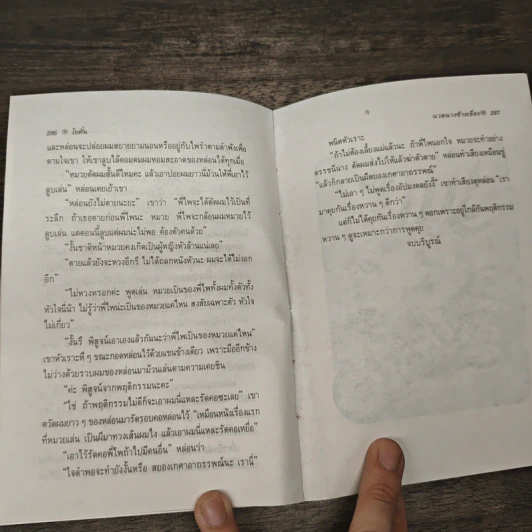 266 ๏ งับดั่น
และหล่อนจะปล่อยผมสยายยามนอนหรืออยู่กับไพรำตามลำพังเพื่อ
ตามใจเขา ให้เขาลูบไล้ดอมดมผมหอมสะอาดของหล่อนได้ทุกเมื่อ
"หมวยตัดผมสั้นดีไหมคะ แล้วเอาปอยผมยาวนี่ม้วนให้พี่เอาไว้
ลูบเล่น" หล่อนเคยเย้าเขา
"หล่อนยังไม่ตายนะยะ" เขาว่า "พี่ไพจะได้ตัดผมไว้เป็นที่
ระลึก ถ้าเธอตายก่อนพี่ไพนะ หมวย พี่ไพจะกล้อนผมหมวยไว้
ลูบเล่น แต่ตอนนี้ลูบแต่ผมน่ะไม่พอ ต้องตัวคนด้วย"
"งั้นชาติหน้าหมวยคงเกิดเป็นผู้หญิงหัวล้านแน่เลย"
"ตายแล้วยังจะหวงอีกรึ ไม่ได้ถลกหนังหัวนะ ผมจะได้ไม่งอก
อีก"
"ไม่หวงหรอกค่ะ พูดเล่น หมวยเป็นของพี่ไพทั้งผมทั้งตัวทั้ง
หัวใจนี่น้า ไม่รู้ว่าพี่ไพน่ะเป็นของหมวยแค่ไหน สงสัยเฉพาะตัว หัวใจ
ไม่เกี่ยว"
"งั้นรึ พิสูจน์เอาเองแล้วกันนะว่าพี่ไพเป็นของหมวยแค่ไหน"
เขาหัวเราะหึ ๆ ขณะกอดหล่อนไว้ด้วยแขนข้างเดียว เพราะมืออีกข้าง
ไม่ว่างด้วยรวบผมของหล่อนมาม้วนเล่นตามความเคยชิน
"ค่ะ พิสูจน์จากพฤติกรรมนะคะ"
"ใช่ ถ้าพฤติกรรมไม่ดีก็จะเอาผมนี่แหละรัดคอซะเลย" เขา
ตวัดผมยาว ๆ ของหล่อนมารัดรอบคอหล่อนไว้ "เหมือนหนังเรื่องแรก
ที่หมวยเล่น เป็นผีมาทวงเส้นผมไง แล้วเอาผมนี่แหละรัดคอเหยื่อ"
"เอาไว้รัดคอพี่ไพถ้าไปมีคนอื่น" หล่อนว่า
"ใจดำพอจะทำยังงั้นหรือ สยองเกศาอาถรรพณ์นะ เรานี่"
นวลนางข้างเขียง ๏ 267
พนิตหัวเราะ
"ถ้าไม่ต้องเลี้ยงแม่แล้วนะ ถ้าพี่ไพนอกใจ หมวยจะทำอย่าง
ดรรชนีนาง ตัดผมส่งไปให้แล้วฆ่าตัวตาย" หล่อนทำเสียงเหมือนขู่
"แล้วก็กลายเป็นผีสยองเกศาอาถรรพณ์"
"ไม่เอา ๆ ไม่พูดเรื่องอัปมงคลยังงี้" เขาทำเสียงดุหล่อน "เรา
มาคุยกันเรื่องหวาน ๆ ดีกว่า"
แต่ก็ไม่ได้คุยกันเรื่องหวาน ๆ ดอกเพราะอยู่ใกล้กันพฤติกรรม
หวาน ๆ ดูจะเหมาะกว่าการพูดคุย
จบบริบูรณ์